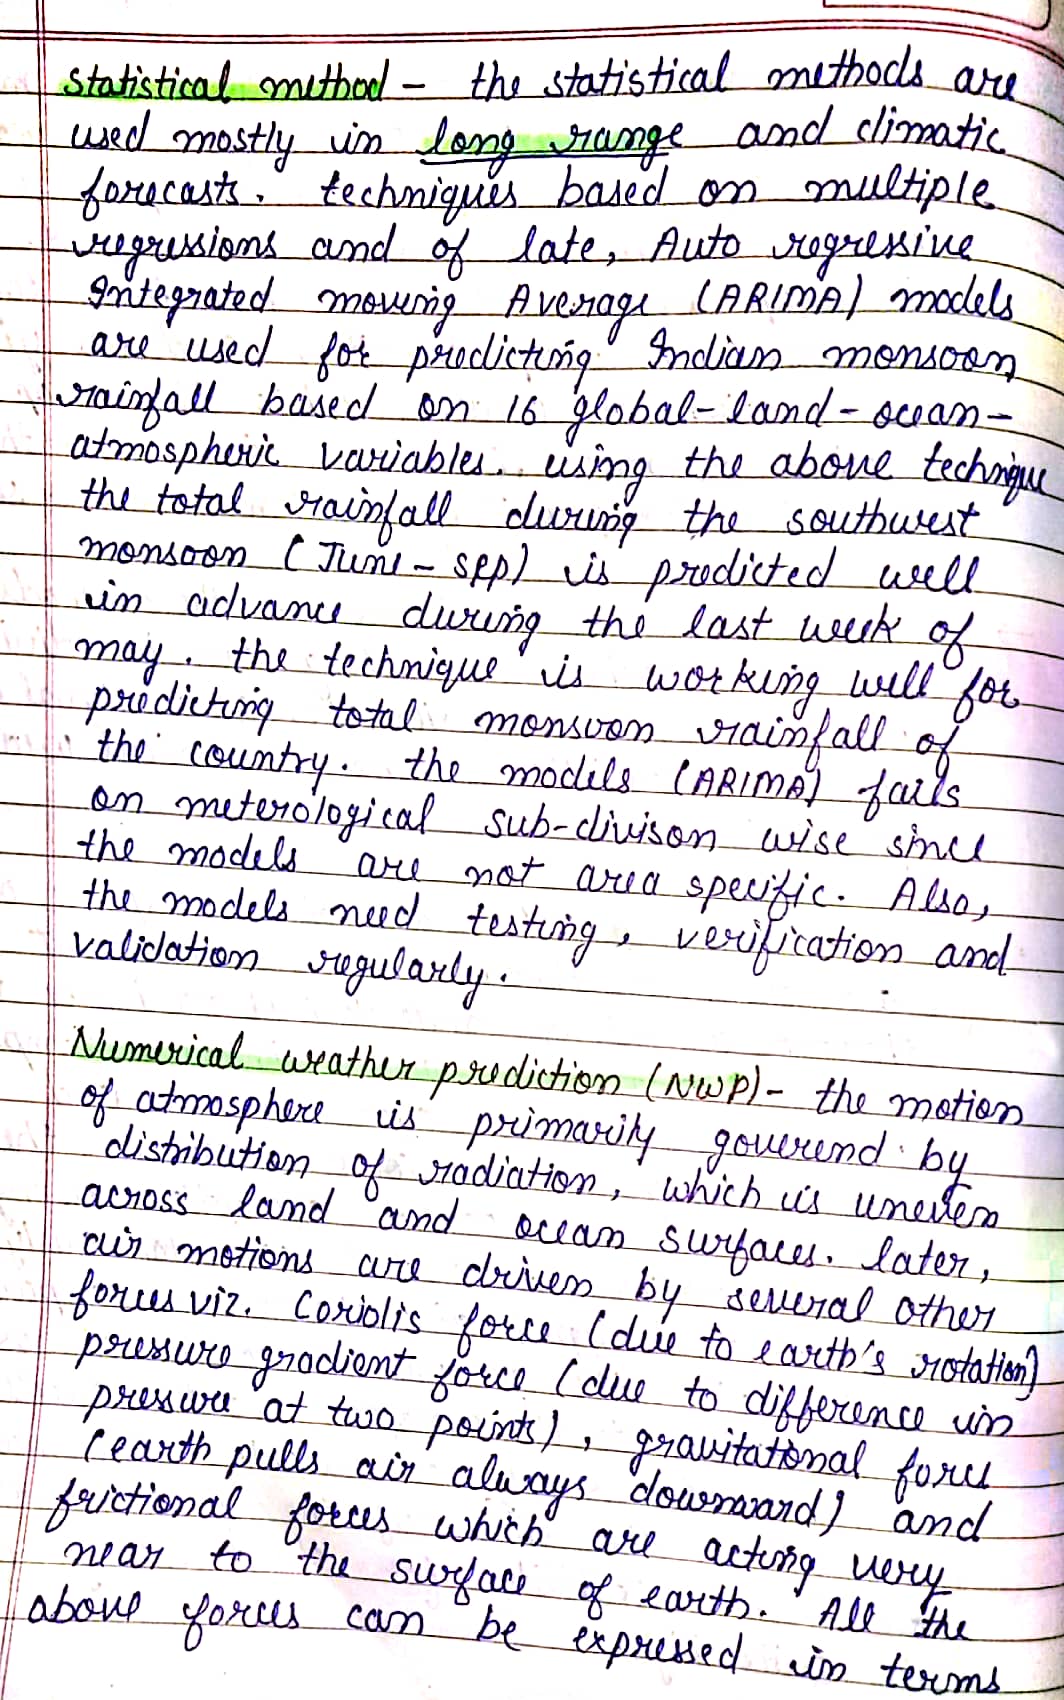 Statistical method - the statistical methods are
used mostly in long range and climatic
forecasts. techniques based on multiple
regressions and of late, Auto regressive
Integrated moving Average (ARIMA) models
are used for predicting Indian monsoon
rainfall based on 16 global-land-ocean-
atmospheric variables. using the above technique
the total rainfall during the southwest
monsoon (June - sep) is predicted well
in advance during the last week of
may. the technique is working well for
predicting total monsoon rainfall of
the country. the models (ARIMA) fails
on meterological sub-divison wise since
the models are not area specific. Also,
the models need testing, verification and
validation regularly.
Numerical weather prediction (NWP) - the motion
of atmosphere is primarily goverend by
distribution of radiation, which is uneven
across land and ocean surfaces. later,
air motions are driven by several other
forces viz. Coriolis force (due to earth's rotation)
pressure gradient force (due to difference in
pressure at two points), gravitational force
(earth pulls air always downward) and
frictional forces which are acting very
near to the surface of earth. All the
above forces can be expressed in terms